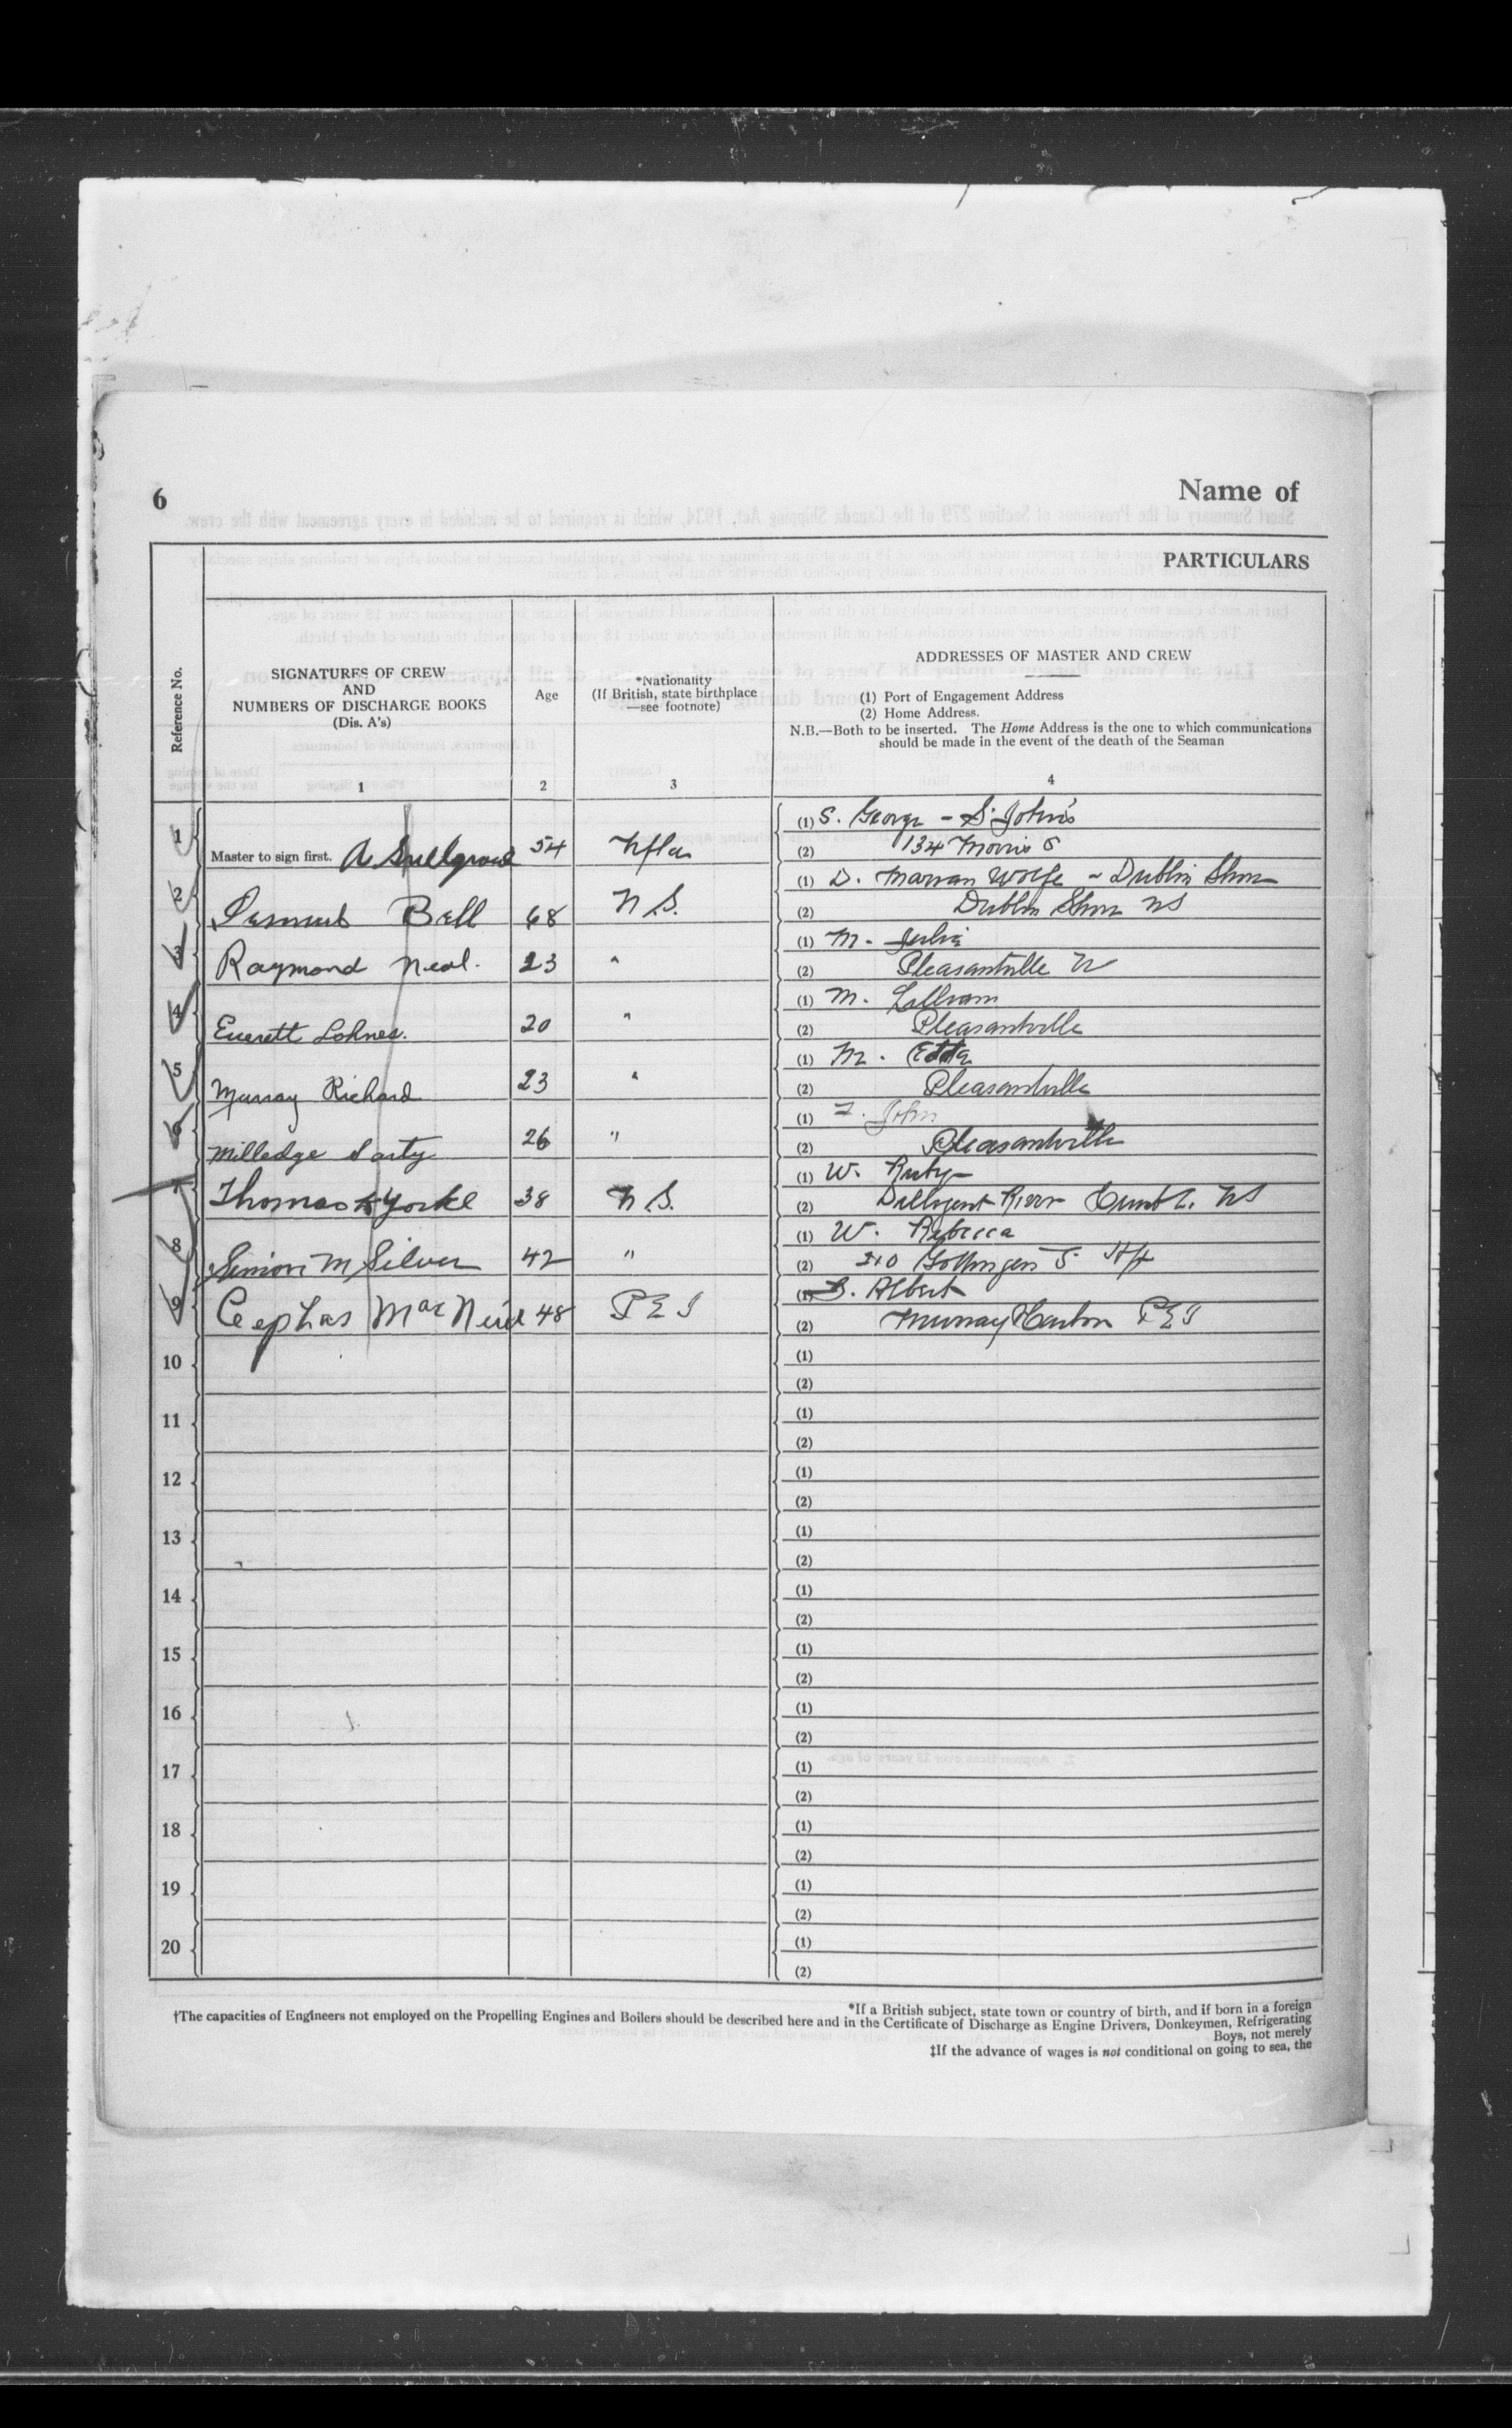 6
Name of
PARTICULARS
Reference No.
SIGNATURES OF CREW
AND
NUMBERS OF DISCHARGE BOOKS
(Dis. A's)
1
Age
2
*Nationality
(If British, state birthplace
—see footnote)
3
ADDRESSES OF MASTER AND CREW
(1) Port of Engagement Address
(2) Home Address.
N.B.—Both to be inserted. The Home Address is the one to which communications
should be made in the event of the death of the Seaman
4
1 Master to sign first. A 54 Nfld
(1) S. George - St John's
(2) 134 Morris S
2 Bell 68 N.S.
(1) D. Marian Wolfe - Dublin Shore
(2) Dublin Shore NS
3 Raymond Neal. 23 "
(1) M. Julia
(2) Pleasantville N
4 Everett Lohnes. 20 "
(1) M. Lillian
(2) Pleasantville
5 Murray Richard 23 "
(1) M. Etta
(2) Pleasantville
6 Milledge Sarty 26 "
(1) F. John
(2) Pleasantville
7 Thomas Yorke 38 N.S.
(1) W. Ruby
(2) Dilligent River Cumb. NS
8 Simon M Silver 42 "
(1) W. Rebecca
(2) 210 Gottingen S. Hfx
9 Cephas MacNeill 48 P E I
(1) B. Albert
(2) Murray Harbor P E I
10 (1)
(2)
11 (1)
(2)
12 (1)
(2)
13 (1)
(2)
14 (1)
(2)
15 (1)
(2)
16 (1)
(2)
17 (1)
(2)
18 (1)
(2)
19 (1)
(2)
20 (1)
(2)
*If a British subject, state town or country of birth, and if born in a foreign
†The capacities of Engineers not employed on the Propelling Engines and Boilers should be described here and in the Certificate of Discharge as Engine Drivers, Donkeymen, Refrigerating
Boys, not merely
‡If the advance of wages is not conditional on going to sea, the